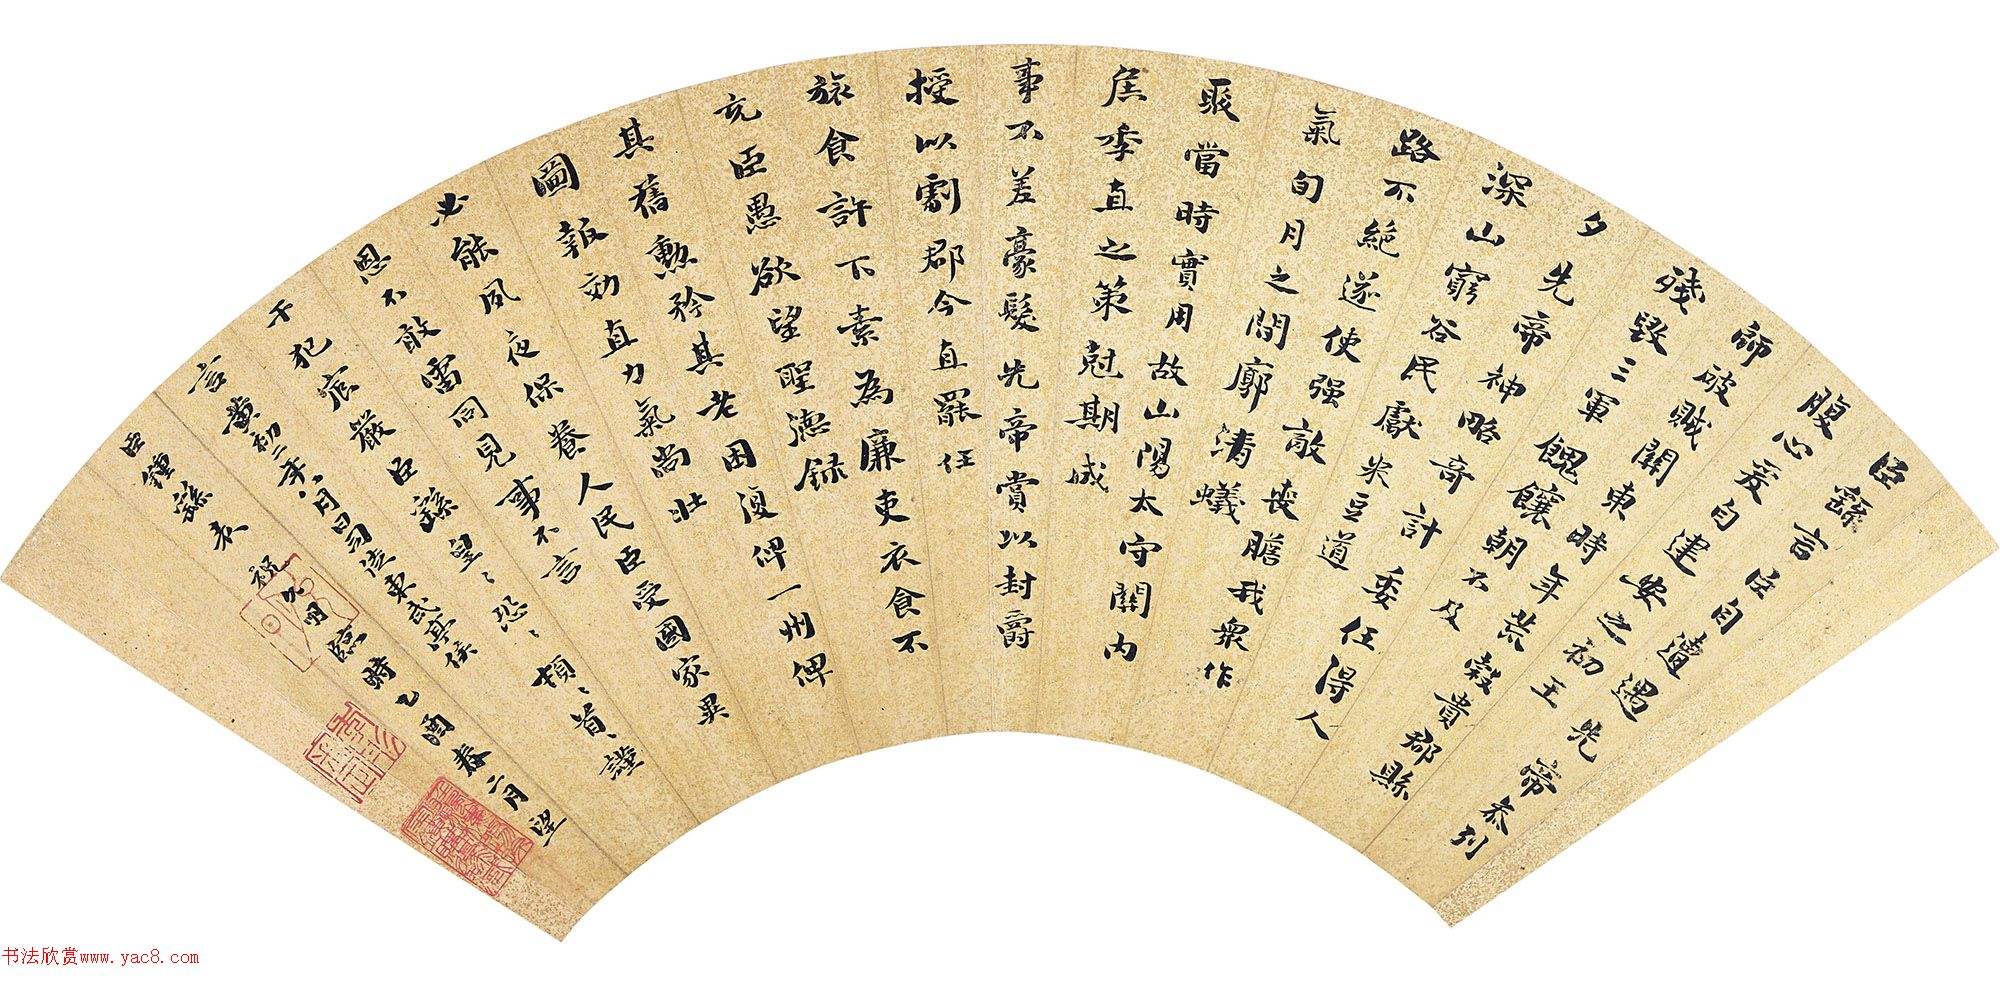 臣繇言臣自遭遇先帝忝列
腹心爰自建安之初王
師破賊關東時年荒穀貴郡縣
殘毀三軍餽饟朝不及
夕先帝神略奇計委任得人
深山窮谷民獻米豆道
路不絕遂使强敵喪膽我衆作
氣旬月之間廓清蟻
聚當時實用故山陽太守關內
侯季直之策尅期成
事不差豪髮先帝賞以封爵
授以劇郡今直罷任
旅食許下素為廉吏衣食不
充臣愚欲望聖德錄
其舊勳矜其老困復俾一州俾
圖報効直力氣尚壯
必能夙夜保養人民臣受國家異
恩不敢雷同見事不言
干犯宸嚴臣繇皇〻恐〻頓〻首謹
言黃初二年八月日司徒東武亭侯
臣鍾繇表 祝允明臨時乙酉春二月望
书法欣赏www.yac8.com